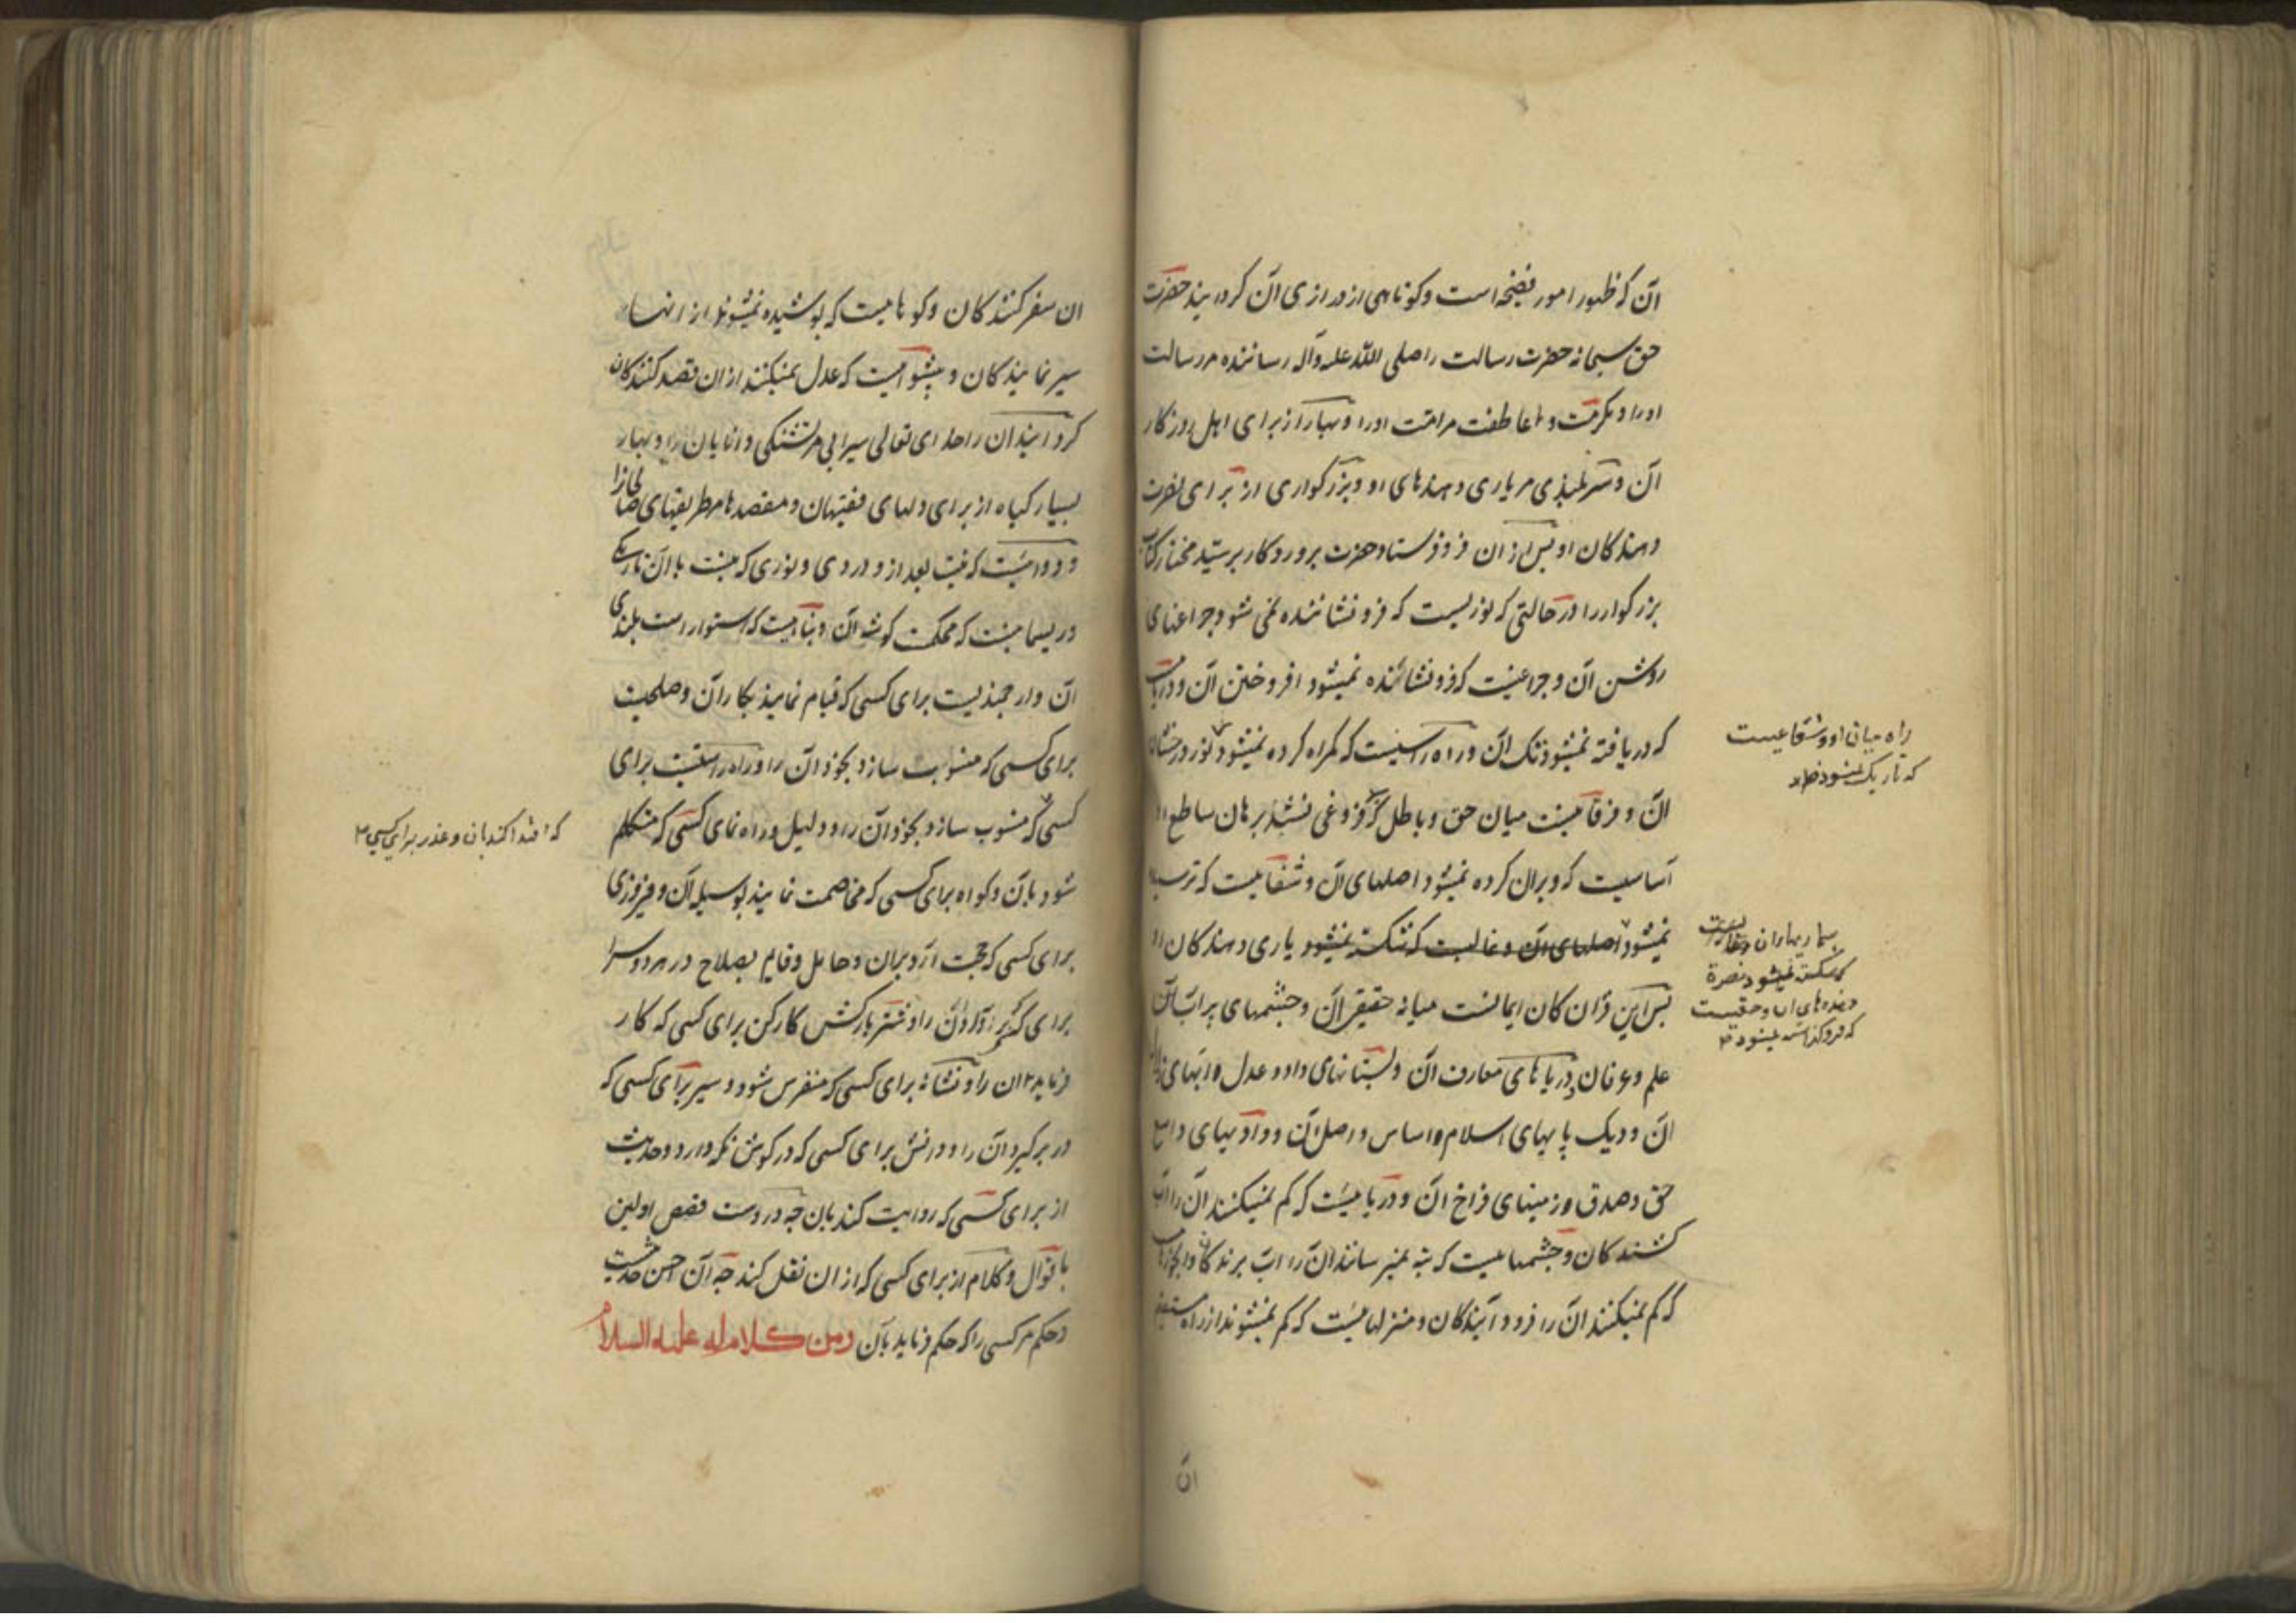 آن که ظهور امور فضیحه است و کوتاهی از درازی آن گردانید حضرت
حق سبحانه حضرت رسالت را صلی الله علیه وآله رساننده مر رسالت
اورا و مکرمت و عاطفت مر امت اورا و بهار از برای اهل روزگار
آن و سربلندی مر یاری دهندهای او و بزرگواری از برای نصرت
دهندگان او پس از آن فرو فرستاد حضرت پروردگار بر سید مختار کتاب
بزرگوار را در حالتی که نوریست که فرو نشاننده نمی شود چراغهای
روشن آن و چراغیست که فرو نشانده نمیشود افروختن آن و دریایی
که دریافته نمیشود تک آن و راه راستیست که گمراه کرده نمیشود نور درخشان
آن و فرقانیست میان حق و باطل که فروغی نشد برهان ساطع
آساسیت که ویران کرده نمیشود اصلهای آن و شفاییست که ترسیده
نمیشود یاری دهندگان او
پس این قرآن کان ایمانست میانه حقیقی آن و چشمهای پر آب آن
علم و عرفان دریاهای معارف آن و بستانهای داد و عدل و آبهای
آن و دیک پایهای اسلام و اساس و رصل آن و وادیهای واسع
حق و صدق و زمینهای فراخ آن و دریاییست که کم نمیکنند آن را آب
کشندگان و چشمهاییست که بته نمیرسانند آن را آب برندگان
که کم نمیکنند آن را فرود آیندگان و منزلهاییست که کم نمیشوند از راه مستقیم
راه میان او و شعاعیست
که تاریک نمیشود
بیماریهای آن و غالبیست
که شکسته نمیشود نصرة
دهندهای آن و حقیست
که فرو گذاشته نمیشود
آن
آن سفرکنندکان و کوهاییست که پوشیده نمیشوند از آنها
سیر نمایندکان و پیشواییست که عدل نمیکنند از آن قصد کنندکان
گردانید آن را خدای تعالی سیرابی مر تشنگی دانایان را و بهار
بسیار کیاه از برای دلهای فقیهان و مقصدها مر طریقهای صالحانرا
و دواییست که نیست بعد از و دردی و نوری که نیست با آن تاریکی
و ریسمانیست که محکمست گوشه آن و پناهیست که استوار است بلندی
آن و ارجمندیست برای کسی که قیام نماید بکار آن و صلحیت
برای کسی که منسوب سازد بخود آن را و راه راستیست برای
کسی که منسوب سازد بخود آن را و دلیل و راه نمای کسی که متکلم
شود بان و کواه برای کسی که مخاصمت نماید بوسیله آن و فیروزی
برای کسی که حجت آرد بر آن و حامل و قایم بصلاح در هر دو سرا
را و شتر بارکش کارکن برای کسی که کار
فرماید آن را و نشانه برای کسی که متفرس شود و سپر برای کسی که
در بر گیرد آن را و دانش برای کسی که در گوش نگه دارد و حدیث
از برای کسی که روایت کند بان چه در وست قصص اولین
باقوال و کلام از برای کسی که از آن نقل کند چه آن احسن حدیث
و حکم مر کسی را که حکم فرماید بآن ومن کلام له علیه السلام
که اقتدا کند بان و عذر برای کسی